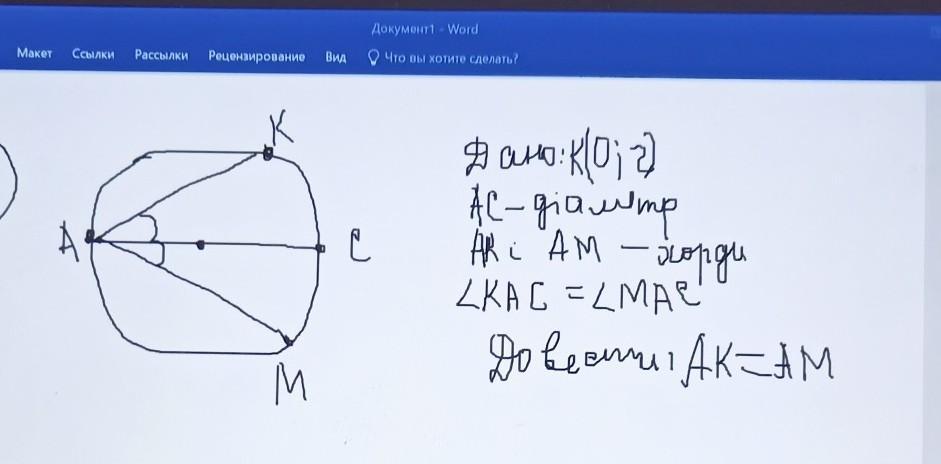 Документ1 - Word
Макет Ссылки Рассылки Рецензирование Вид Что вы хотите сделать?
K
A
C
M
Дано: K(O; r)
AC - діаметр
AK і AM - хорди
∠KAC = ∠MAC
Довести: AK = AM